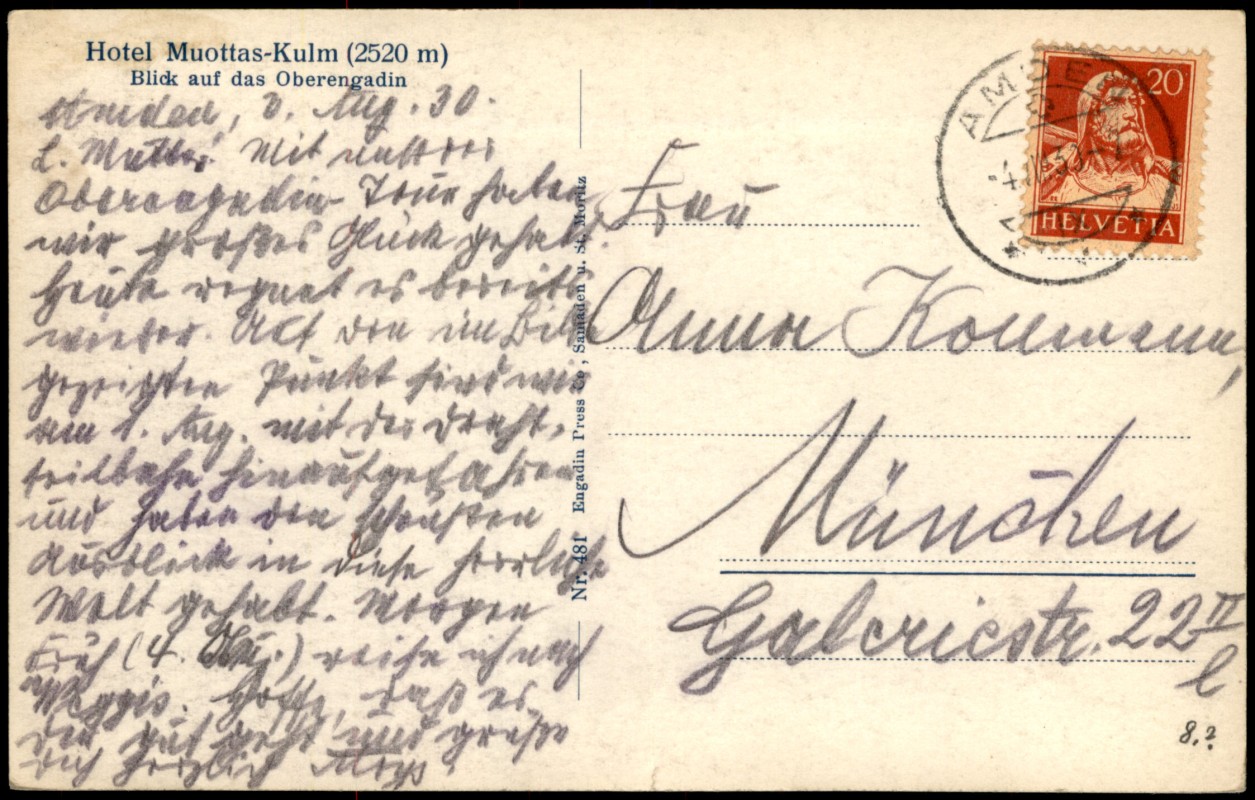 Hotel Muottas-Kulm (2520 m)
Blick auf das Oberengadin
Amden, 3. Aug. 30.
L. Mutter! Mit unserer
Oberengadin-Tour haben
wir großes Glück gehabt.
Heute regnet es bereits
wieder. Auf den im Bild
gezeigten Punkt sind wir
am 1. Aug. mit der Draht-
seilbahn hinaufgefahren
und haben den schönsten
Ausblick in diese herrliche
Welt gehabt. Morgen
früh (4. Aug.) reise ich nach
Weggis. Hoffe, daß es
dir gut geht und grüße
dich herzlich
Nr. 481 Engadin Press Co., Samaden u. St. Moritz
AMDEN
20
HELVETIA
Frau
Anna Kollmann,
München
Galeriestr. 22 II
l
8.?